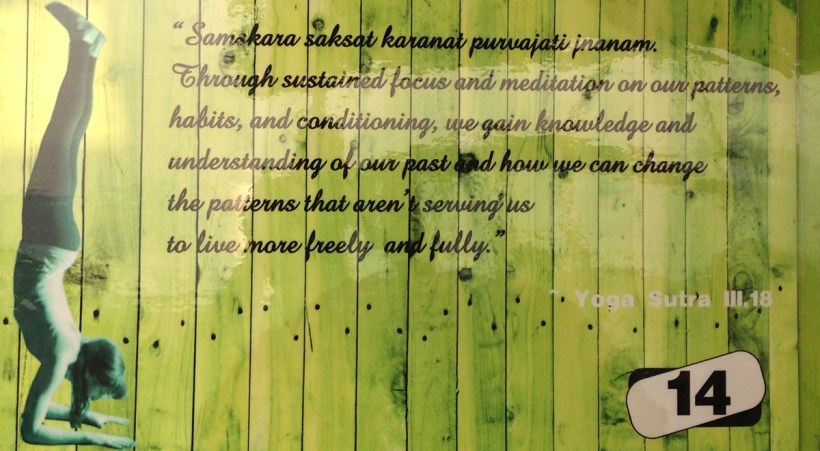 “Samskara saksat karanat purvajati jnanam.
Through sustained focus and meditation on our patterns,
habits, and conditioning, we gain knowledge and
understanding of our past and how we can change
the patterns that aren't serving us
to live more freely and fully.”
~ Yoga Sutra III.18
14